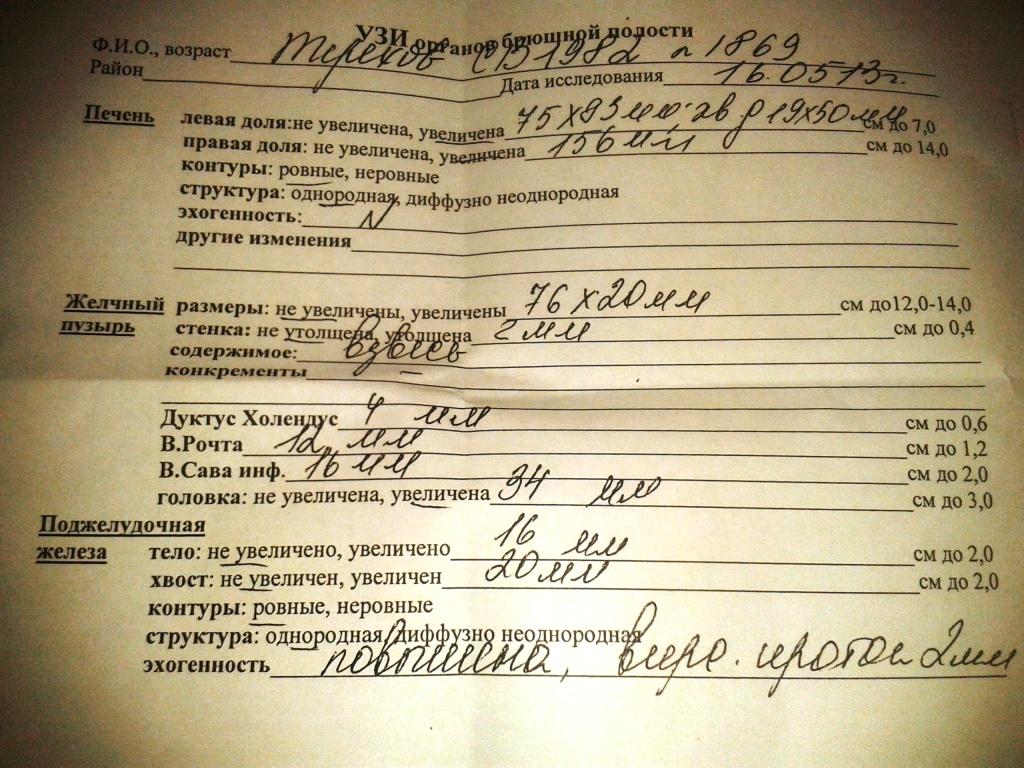 УЗИ органов брюшной полости
Ф.И.О., возраст Терехов С В 1982 1869
Район Дата исследования 16.05.13г.
Печень левая доля:не увеличена, увеличена 75х93мм, 19х50мм см до 7,0
правая доля: не увеличена, увеличена 156мм см до 14,0
контуры: ровные, неровные
структура: однородная, диффузно неоднородная
эхогенность: N
другие изменения
Желчный размеры: не увеличены, увеличены 76х20мм см до12,0-14,0
пузырь стенка: не утолщена, утолщена 2мм см до 0,4
содержимое: взвесь
конкременты –
Дуктус Холендус 4 мм см до 0,6
В.Рочта 12 мм см до 1,2
В.Сава инф. 16 мм см до 2,0
головка: не увеличена, увеличена 34 мм см до 3,0
Поджелудочная
железа тело: не увеличено, увеличено 16 мм см до 2,0
хвост: не увеличен, увеличен 20мм см до 2,0
контуры: ровные, неровные
структура: однородная, диффузно неоднородная
эхогенность повышена, вирс. проток 2мм